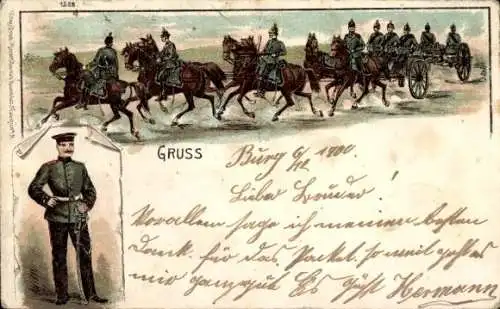 1228
GRUSS
Burg 6/12 1900.
Lieber Bruder!
Vorallem sage ich meinen besten
Dank für das Packet. so weit geht es
mir ganz gut Es grüßt Hermann